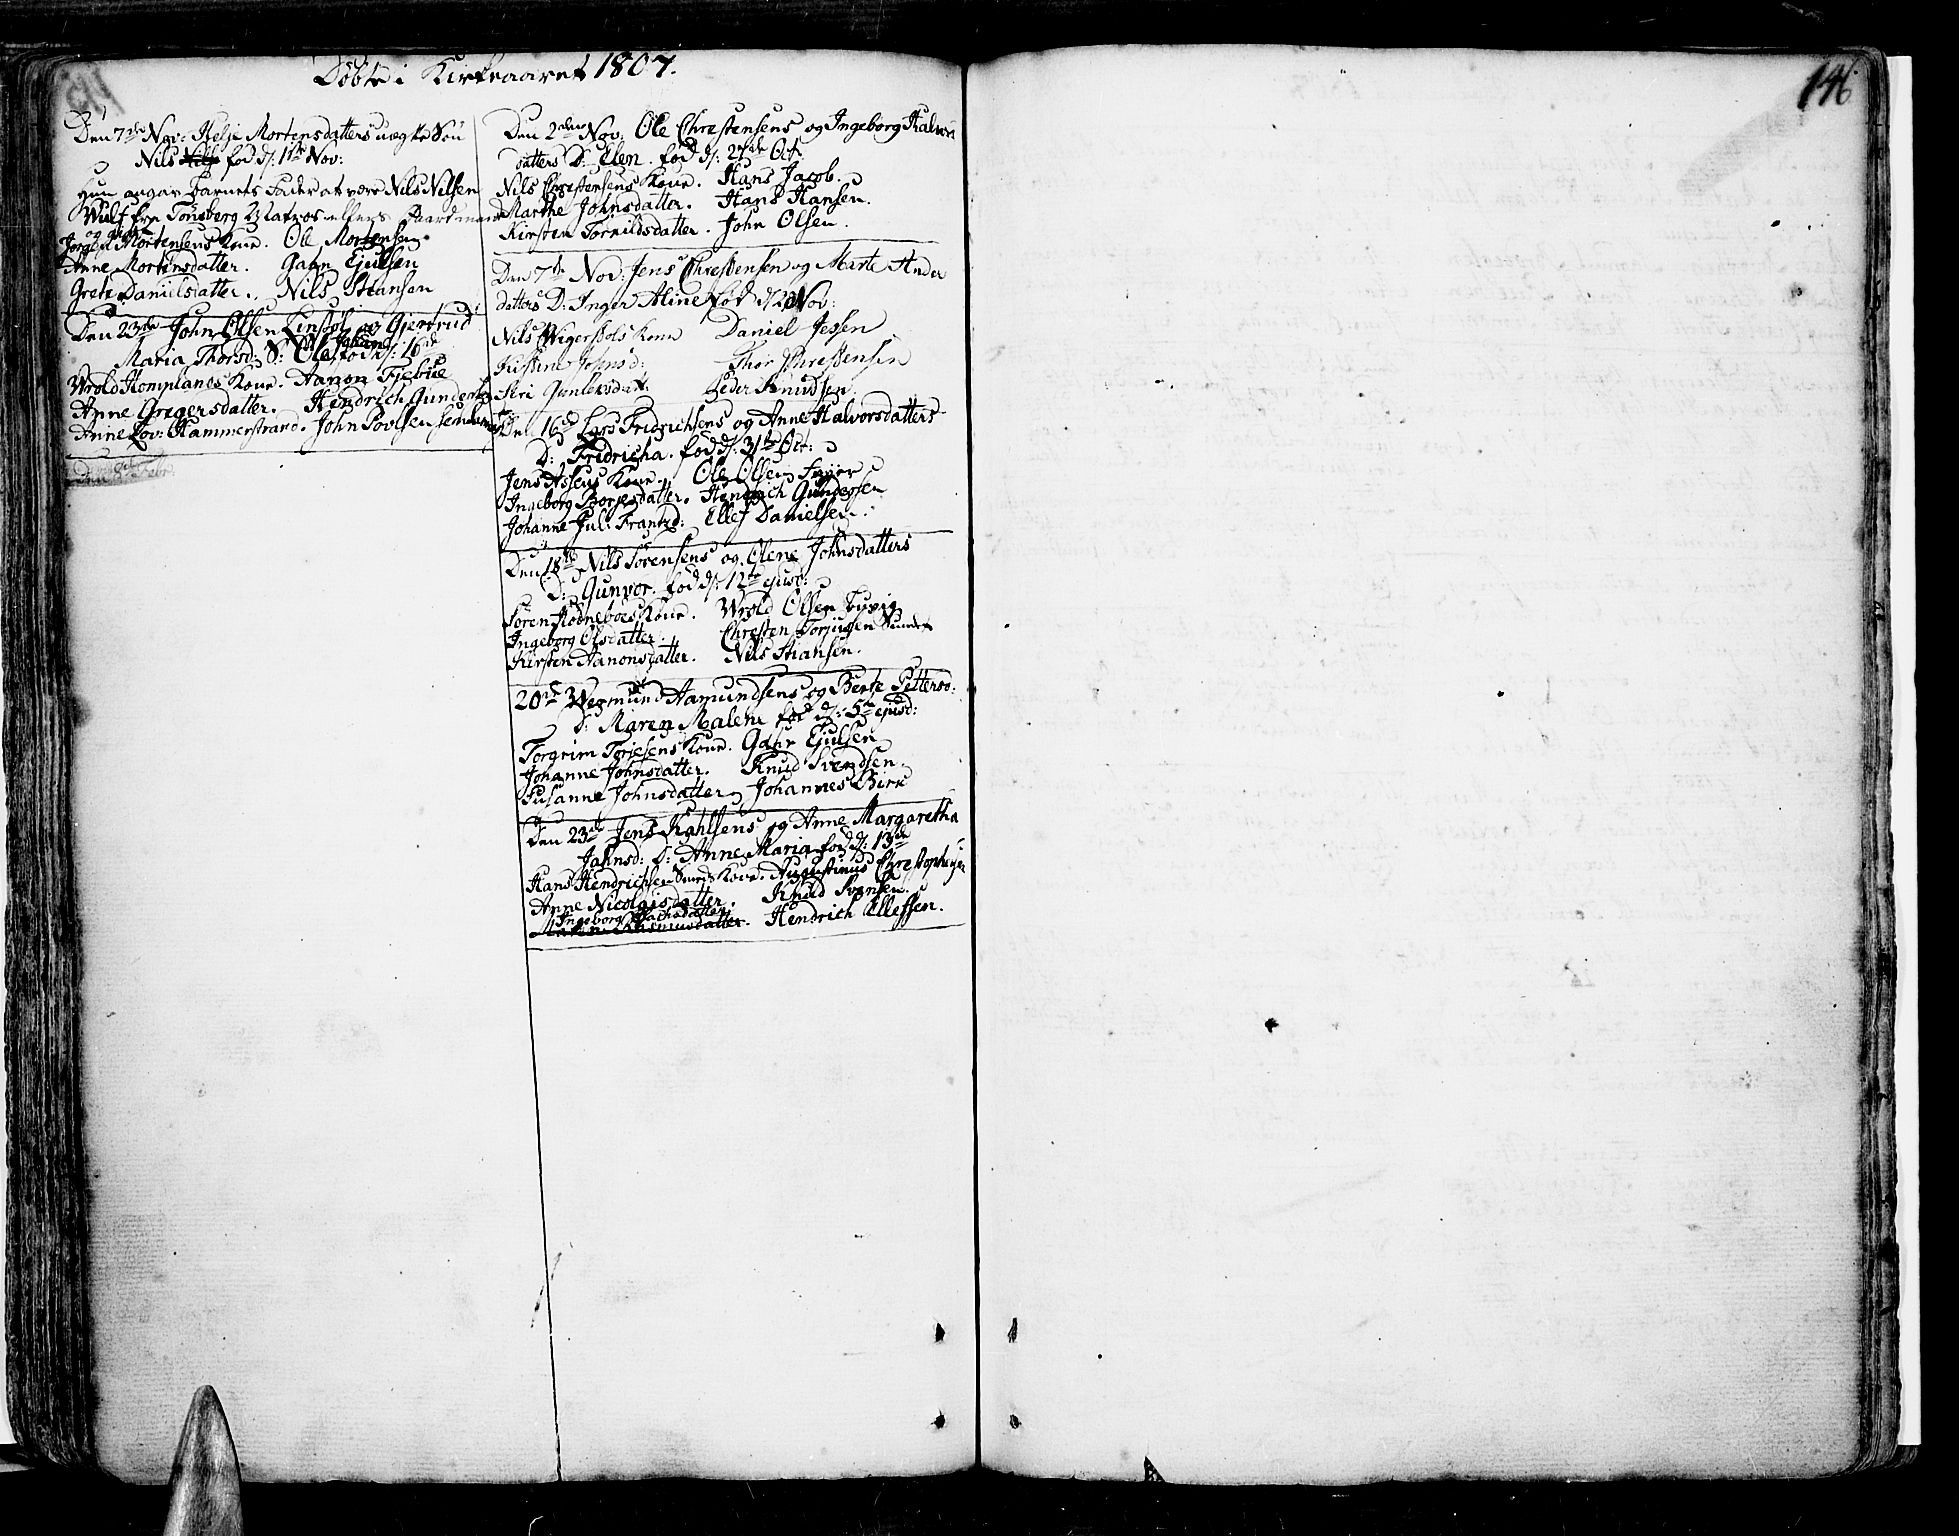 Döbte i Kirkeaaret 1807.
146
Den 7de Nov: Helje Mortensdatters uægte Sön
Nils Nils föd d: 1ste Nov:
Hun angav Barnets Fader at være Nils Nilsen
Wulf fra Tönsberg Matros
og gift
Mortensens Kone. Ole Mortensen
Anne Mortensdatter. Gahn Ejulsen
Grete Danielsdatter. Nils Hansen
Den 23de John Olsen og Gjertrud
Johan
Maria Thorsd: S: Ole föd d: 16de
Wrold Komplanes Kone. Aanon Fjebue
Anne Gregersdatter. Hendrich Gunders
Anne Lov: Hammerstrand. John Povelsen
Den Febr.
Den 2den Nov: Ole Chrestensens og Ingeborg Halvors
datters D: Elen. föd d: 27de Oct.
Nils Chrestensens Kone. Hans Jacob.
Marthe Johnsdatter. Hans Hansen.
Kirsten Tornildsdatter. John Olsen.
Den 7de Nov: Jens Chrestensen og Marte Ander
datters D: Inger Aline föd d 2 Nov:
Nils Wigerstöls Kone Daniel Jessen
Kistine Jensd: Thor Chrestensen
Siri Gunlevsdat: Peder Knudsen
Den 16de Lars Fridrichsens og Anne Halvorsdatters
D: Fridricha. föd d: 31te Oct:
Jens Assens Kone. Ole Olsen
Ingeborg Börjesdatter. Hendrich Gundersen
Johanne Jul: Frantzd: Ellef Danielsen.
Den 18de Nils Sörensens og Olene Johnsdatters
D: Gunvor. föd d: 12te ejusd:
Sören Rödneboes Kone. Wrold Olsen
Ingeborg Olsdatter. Chresten Torjusen
Kirsten Aanonsdatter. Nils Hansen.
20de Wermund Aamundsens og Berte Pettersd:
D: Maren Malene föd d: 5te ejusd:
Torgrim Torjesens Kone. Gahr Ejulsen
Johanne Johnsdatter. Knud Svendsen
Susanne Johnsdatter Johannes Birk
Den 23de Jens Kahlsens og Anne Margaretha
Jahnsd: D: Anne Maria föd d: 13de
Hans Hendrichsen Kone. Augustinus Christophersen
Anne Nicolaisdatter. Knud Svensen.
Ingeborg
Rasmusdatter. Hendrich Elleffsen.